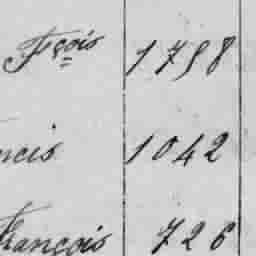 Fçois 1758
ncis 1042
François 726